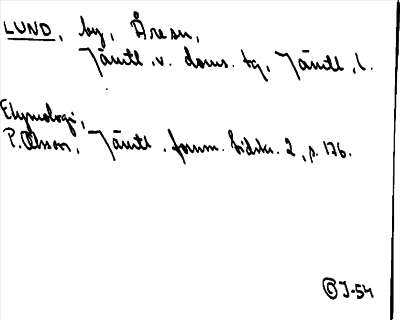 LUND, by, Åresn,
Jämtl. v. doms. tg, Jämtl. l.
Etymologi,
P. Olsson, Jämtl. fornm. tidskr. 2, p. 176.
© J-54